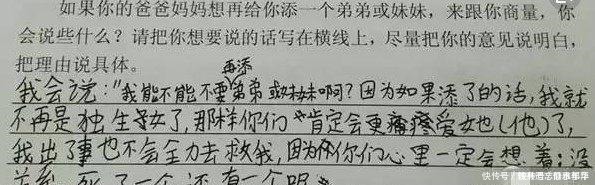 如果你的爸爸妈妈想再给你添一个弟弟或妹妹，来跟你商量，你
会说些什么？请把你想要说的话写在横线上，尽量把你的意见说明白，
把理由说具体。
再添
我会说："我能不能不要弟弟或妹妹啊？因为如果添了的话，我就
不再是独生女了，那样你们肯定会更疼爱她(他)了，
我出了事也不会全力去救我，因为你们心里一定会想着：没
关系，死了一个还有一个呢
快传号/